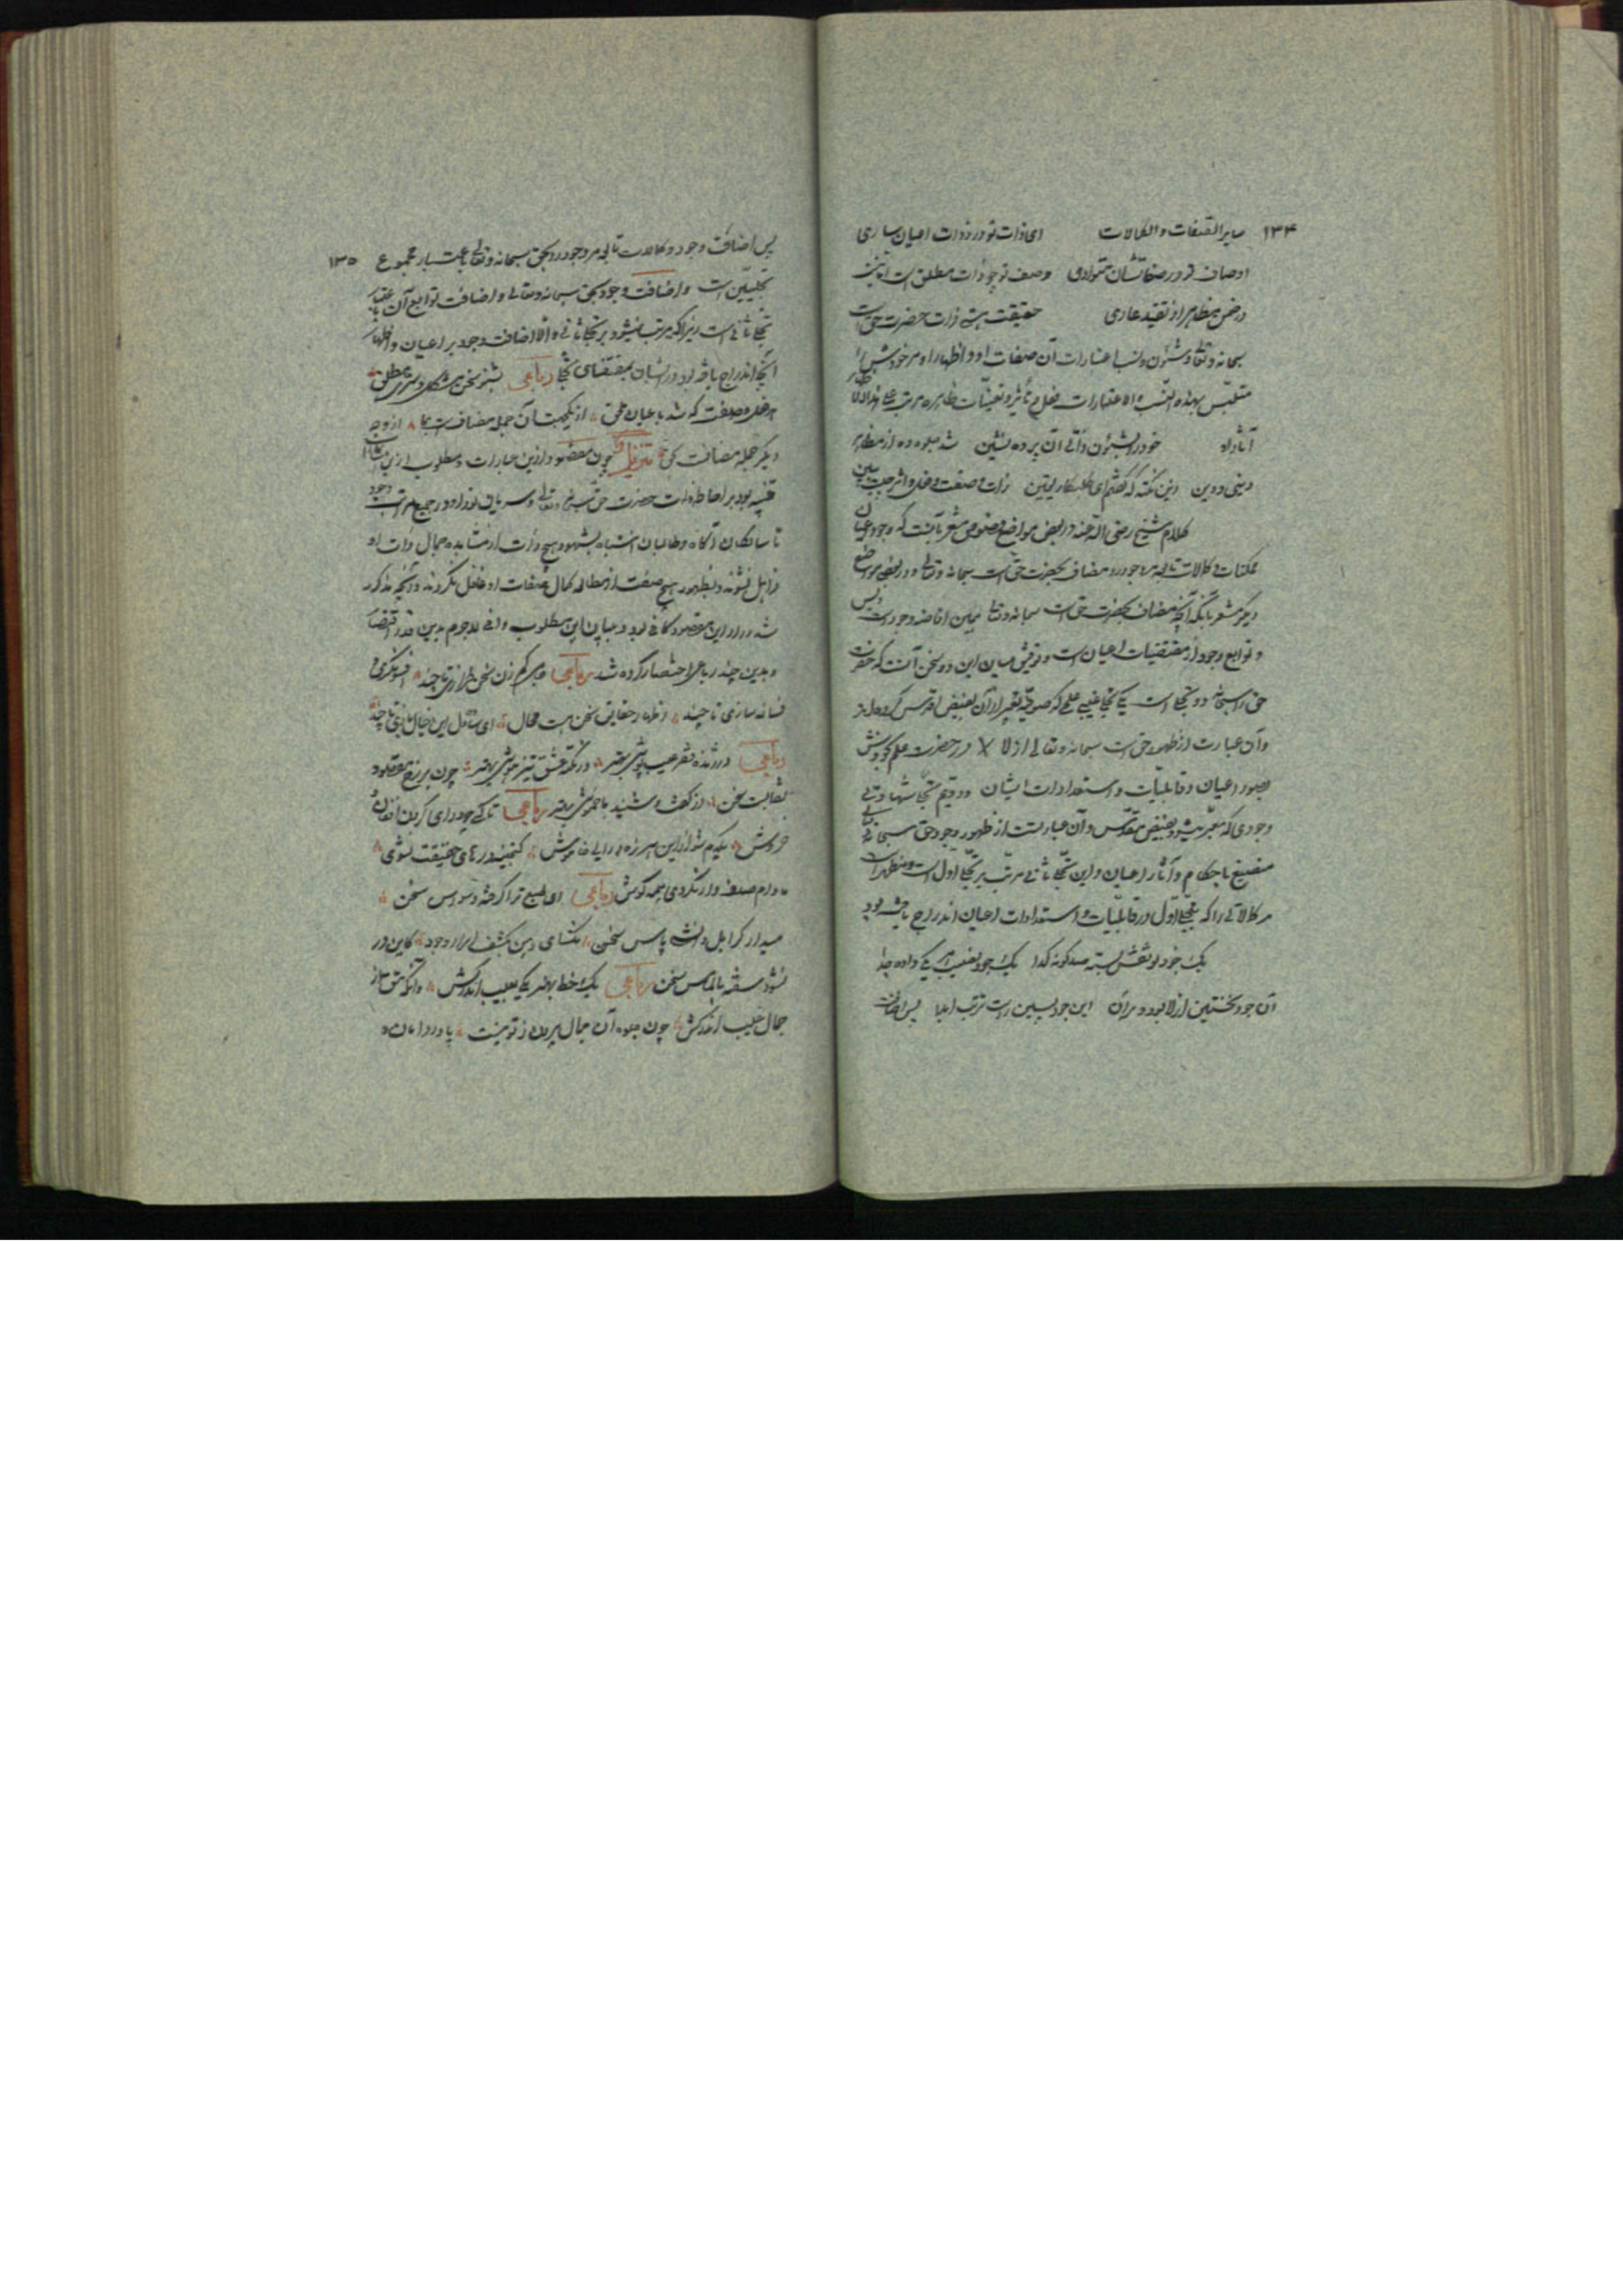 ۱۳۴ سایر الصفات و الکمالات ای ذات تو در ذوات اعیان ساری
اوصاف تو در صفاتشان متواری وصف تو چو ذات مطلق است اما نیست
در ضمن مظاهر از تقید عاری حقیقت هستی ذات حضرت حق است
سبحانه و تعالی و شئون و نسب و اعتبارات آن صفات او و اظهار او مر خودش را
متلبس بهذه النسب و الاعتبارات فعل و تأثیر و تعینات ظاهره مرتبه علی هذا الاظهار
آثار او خود را بشئون ذاتی آن پرده نشین شد جلوه ده از مظاهر
دنیی و دین زین نکته که گفتم ای طلبکار یقین ذات و صفت و فعل و اثر چیست ببین
کلام شیخ رضی الله عنه در بعضی مواضع فصوص مشعر بآنست که وجود اعیان
ممکنات و کمالات تابعه مر وجود را مضاف بحضرت حق است سبحانه و تعالی و در بعضی مواضع
دیگر مشعر بانکه آنچه مضاف بحضرت حق است سبحانه و تعالی همین افاضه وجود است و بس
و توابع وجود از مقتضیات اعیان است و توفیق میان این دو سخن آنست که حضرت
حق را سبحانه دو تجلی است یکی تجلی غیبی علمی که صوفیه تعبیر از آن بفیض اقدس کرده‌اند
و آن عبارت از ظهور حق است سبحانه و تعالی ازلا در حضرت علم بر خودش
بصور اعیان و قابلیات و استعدادات ایشان و دویم تجلی شهادتی
وجودی که معبر میشود بفیض مقدس و آن عبارتست از ظهور وجود حق سبحانه و تعالی
منصبغ باحکام و آثار اعیان و این تجلی ثانی مرتب بر تجلی اول است و مظهر است
مر کمالاتی را که بتجلی اول در قابلیات و استعدادات اعیان اندراج یافته بود
یک جود تو نقش بسته صد گونه گدا یک جود نصیب هر یکی داده جدا
آن جود نخستین ازلا بود و بر آن این جود پسین راست ترتب ابدا پس اضافت
۱۳۵ پس اضافت وجود و کمالات تابع مر وجود را بحق سبحانه و تعالی باعتبار مجموع
تجلیین است و اضافت وجود بحق سبحانه و تعالی و اضافت توابع آن باعیان
تجلی ثانی است زیرا که مرتب نمیشود بر تجلی ثانی الا اضافت وجود بر اعیان و اظهار
آنچه اندراج یافته بود در ایشان بمقتضای تجلی رباعی بشنو سخنی مشکل و سری مغلق
هر فعل و صفت که شد باعیان ملحق از یک جهت آن جمله مضافست بما از وجه
دیگر جمله مضافست بحق تذییل چون مقصود ازین عبارات و مطلوب ازین اشارات
تنبیه بود بر احاطه ذات حضرت حق سبحانه و تعالی و سریان نور او در جمیع مراتب وجود
تا سالکان آگاه و طالبان انتباه بشهود هیچ ذات از مشاهده جمال ذات او
ذاهل نشوند و بظهور هیچ صفت از مطالعه کمال صفات او غافل نگردند و آنچه مذکور
شد در ادای این مقصود کافی بود و ببیان این مطلوب وافی لاجرم بدین قدر اقتضا
و بدین چند رباعی اختصار کرده شد رباعی جامی دم زن سخن طرازی تا چند افسونگری
فسانه سازی تا چند اظهار حقایق بسخن هست محال ای ساده دل این خیال بازی تا چند
رباعی در ژنده فقر عیب پوشی بهتر در نکته عشق تیز هوشی بهتر چون بر رخ مقصود
نقابست سخن از گفت و شنید ما خموشی بهتر رباعی تا کی چو درای کردن افغان
خروش یکدم شو ازین هرزه درایی خاموش گنجینه درهای حقیقت نشوی
مادام صدف وار نگردی همه گوش رباعی ای طبع ترا گرفته وسواس سخن
میدار گر اهل دانشی پاس سخن مگشای دهن بکشف اسرار وجود کاین در
نشود سفته بالماس سخن رباعی یک خط بهنر یکی بعیب اندر کش وآنگه تتق از
جمال غیب اندر کش چون جلوه آن جمال بیرون ز تو نیست پا در دامان و